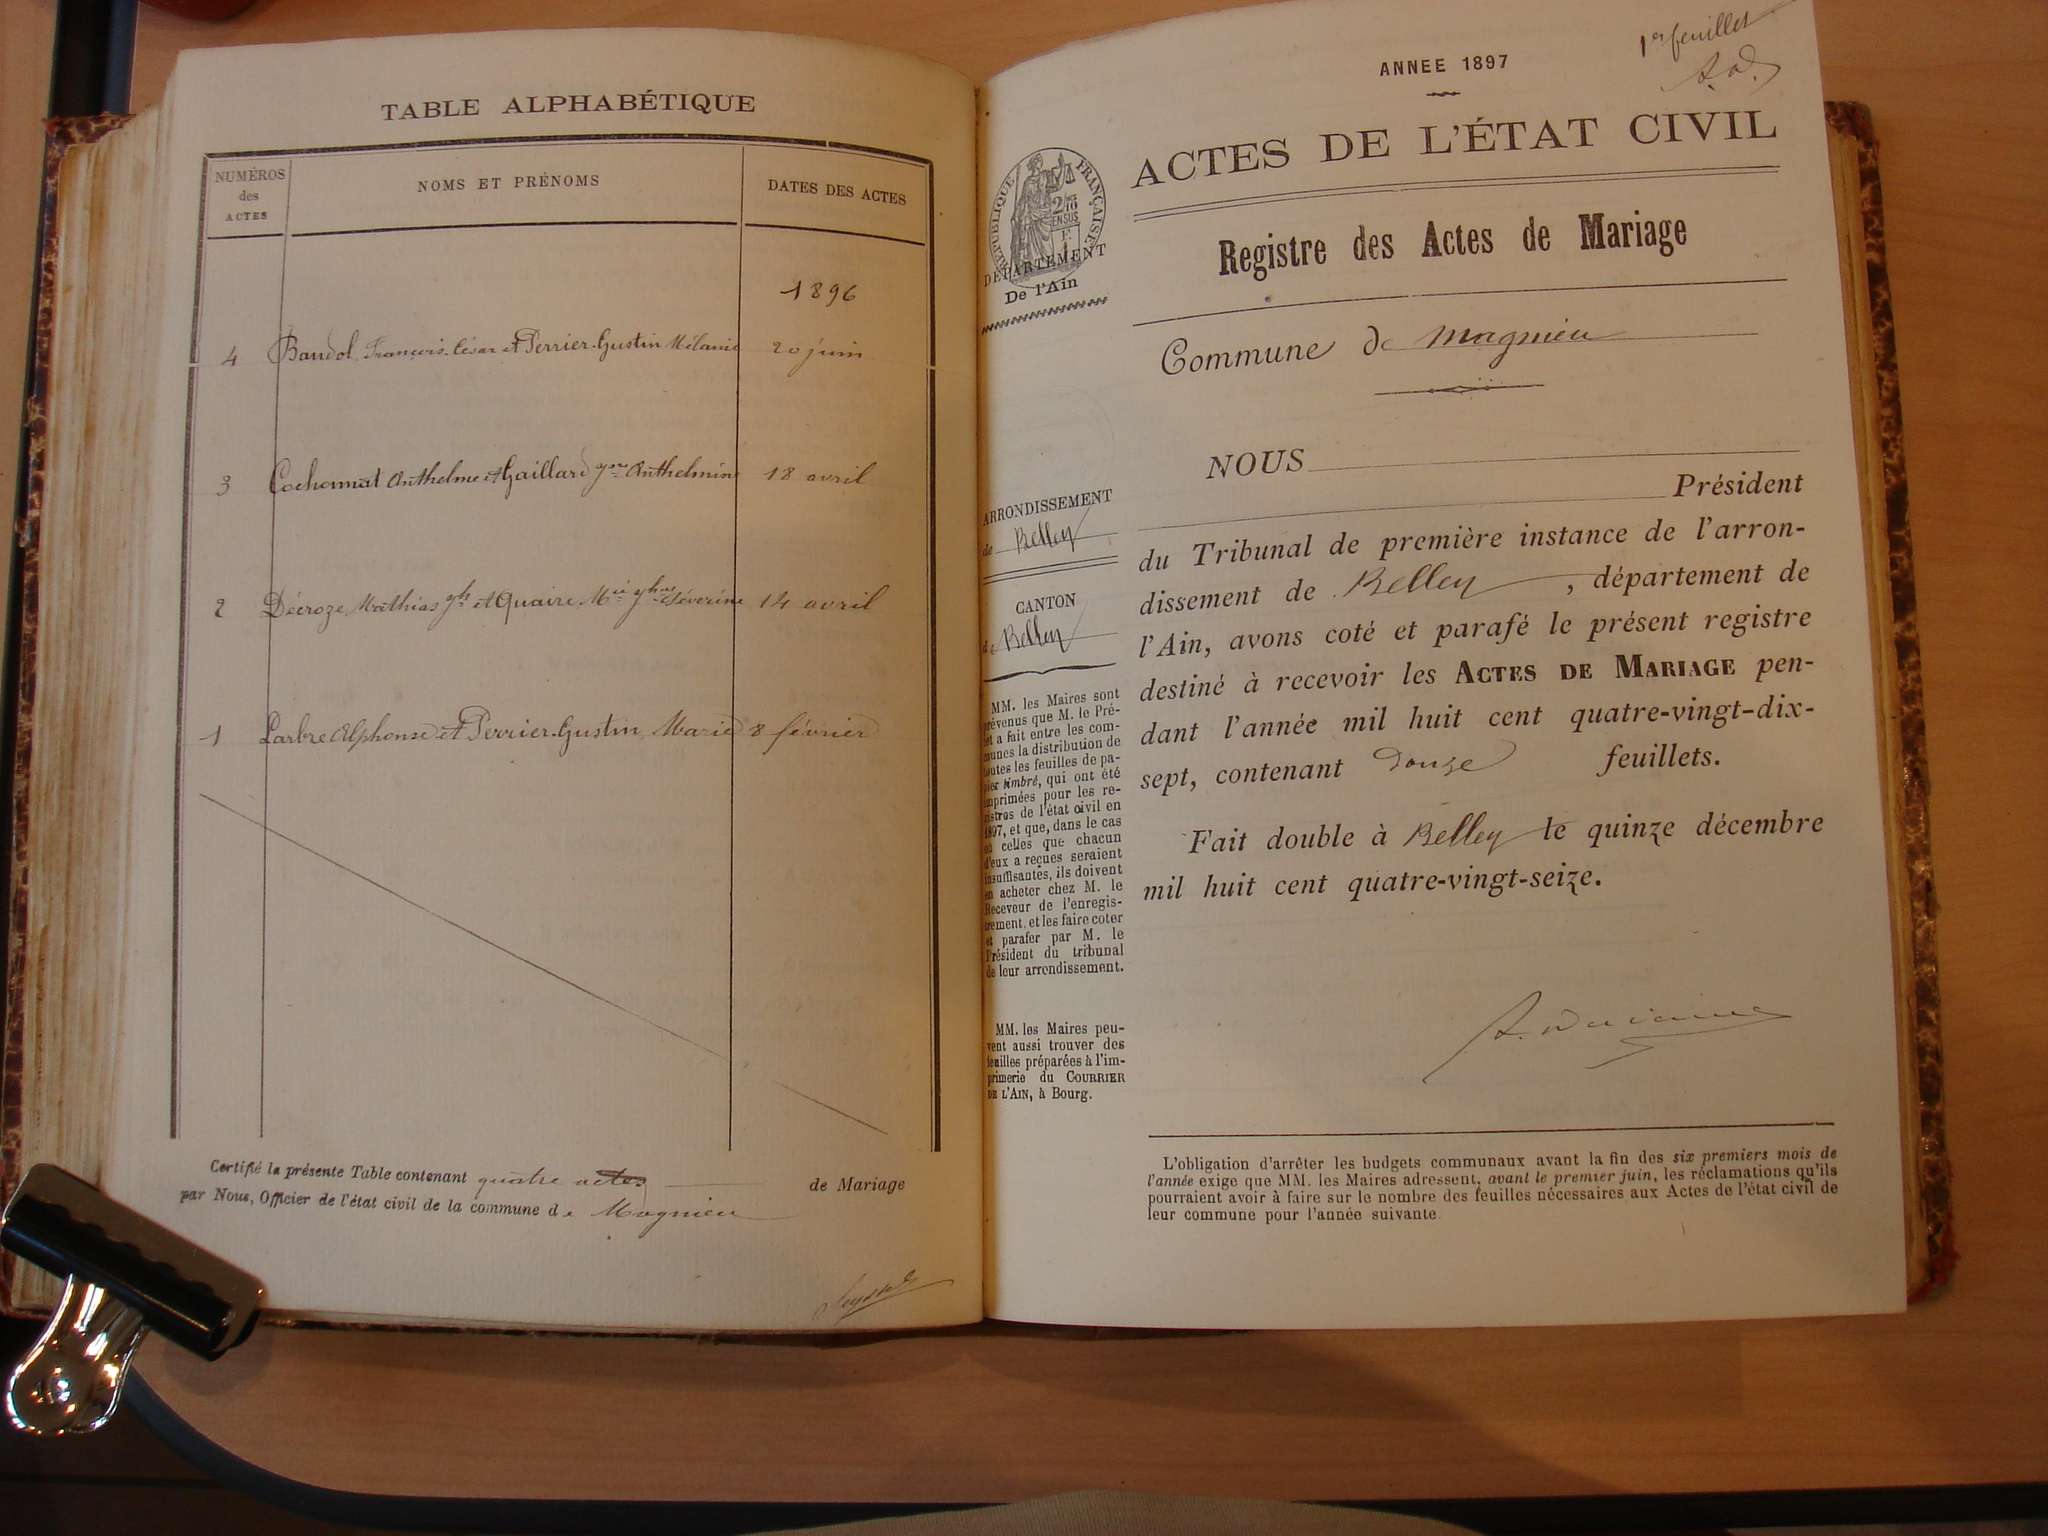 TABLE ALPHABÉTIQUE
NUMÉROS
des
ACTES
NOMS ET PRÉNOMS
DATES DES ACTES
1896
4 Baudol François César et Perrier-Gustin Mélanie 20 juin
3 Cochonnat Anthelme et Gaillard Anthelmine 18 avril
2 Décroze Mathias et Quaire Mie Séverine 14 avril
1 Larbre Alphonse et Perrier-Gustin Marie 8 février
Certifié la présente Table contenant quatre actes de Mariage
par Nous, Officier de l'état civil de la commune de Magnieu
1er feuillet
ANNEE 1897
ACTES DE L'ÉTAT CIVIL
RÉPUBLIQUE FRANÇAISE
DÉPARTEMENT
De l'Ain
Registre des Actes de Mariage
Commune de Magnieu
NOUS
Président
ARRONDISSEMENT
de Belley
CANTON
de Belley
du Tribunal de première instance de l'arron-
dissement de Belley, département de
l'Ain, avons coté et parafé le présent registre
destiné à recevoir les ACTES DE MARIAGE pen-
dant l'année mil huit cent quatre-vingt-dix-
sept, contenant douze feuillets.
Fait double à Belley le quinze décembre
mil huit cent quatre-vingt-seize.
MM. les Maires sont
prévenus que M. le Pré-
fet a fait entre les com-
munes la distribution de
toutes les feuilles de pa-
pier timbré, qui ont été
imprimées pour les re-
gistres de l'état civil en
1897, et que, dans le cas
où celles que chacun
d'eux a reçues seraient
insuffisantes, ils doivent
en acheter chez M. le
Receveur de l'enregis-
trement, et les faire coter
et parafer par M. le
Président du tribunal
de leur arrondissement.
MM. les Maires peu-
vent aussi trouver des
feuilles préparées à l'im-
primerie du COURRIER
DE L'AIN, à Bourg.
L'obligation d'arrêter les budgets communaux avant la fin des six premiers mois de
l'année exige que MM. les Maires adressent, avant le premier juin, les réclamations qu'ils
pourraient avoir à faire sur le nombre des feuilles nécessaires aux Actes de l'état civil de
leur commune pour l'année suivante.